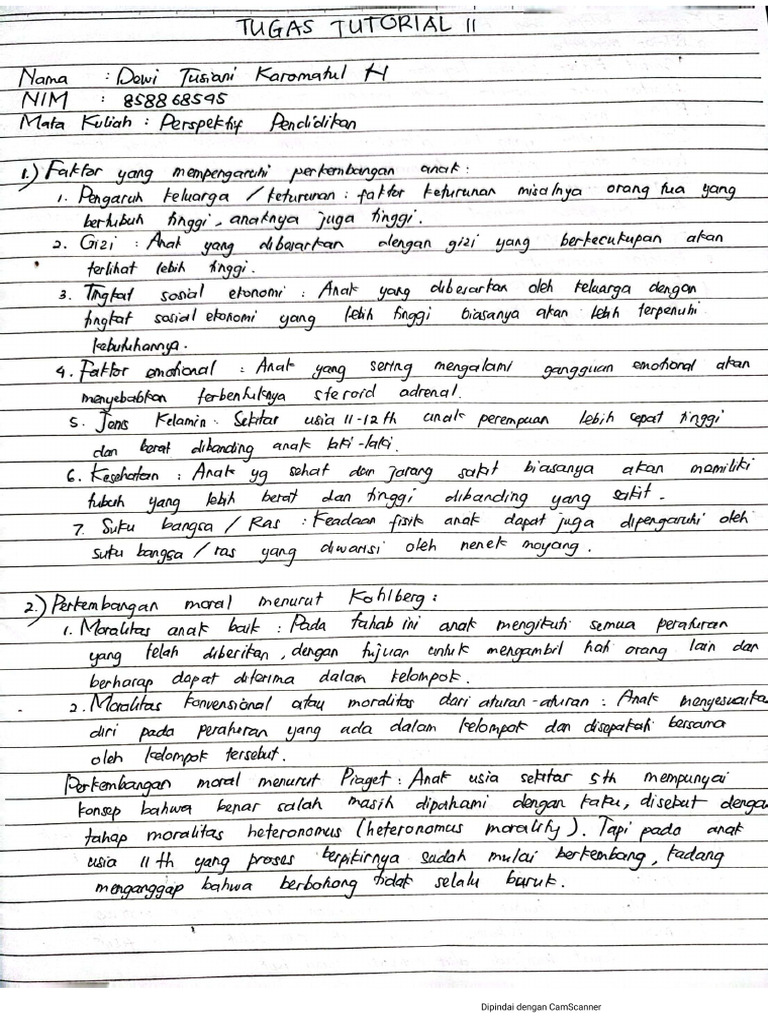 TUGAS TUTORIAL II
Nama : Dewi Tusiani Karomatul H
NIM : 858868595
Mata Kuliah : Perspektif Pendidikan
1.) Faktor yang mempengaruhi perkembangan anak :
1. Pengaruh keluarga / keturunan : faktor keturunan misalnya orang tua yang
bertubuh tinggi, anaknya juga tinggi.
2. Gizi : Anak yang dibesarkan dengan gizi yang berkecukupan akan
terlihat lebih tinggi.
3. Tingkat sosial ekonomi : Anak yang dibesarkan oleh keluarga dengan
tingkat sosial ekonomi yang lebih tinggi biasanya akan lebih terpenuhi
kebutuhannya.
4. Faktor emotional : Anak yang sering mengalami gangguan emotional akan
menyebabkan terbentuknya steroid adrenal.
5. Jenis Kelamin : Sekitar usia 11-12 th anak perempuan lebih cepat tinggi
dan berat dibanding anak laki-laki.
6. Kesehatan : Anak yg sehat dan jarang sakit biasanya akan memiliki
tubuh yang lebih berat dan tinggi dibanding yang sakit.
7. Suku bangsa / Ras : Keadaan fisik anak dapat juga dipengaruhi oleh
suku bangsa / ras yang diwarisi oleh nenek moyang.
2.) Perkembangan moral menurut Kohlberg :
1. Moralitas anak baik : Pada tahab ini anak mengikuti semua peraturan
yang telah diberikan, dengan tujuan untuk mengambil hati orang lain dan
berharap dapat diterima dalam kelompok.
2. Moralitas Konvensional atau moralitas dari aturan-aturan : Anak menyesuaika
diri pada peraturan yang ada dalam kelompok dan disepakati bersama
oleh kelompok tersebut.
Perkembangan moral menurut Piaget : Anak usia sekitar 5 th mempunyai
konsep bahwa benar salah masih dipahami dengan kaku, disebut dengan
tahap moralitas heteronomus (heteronomus morality). Tapi pada anak
usia 11 th yang proses berpikirnya sudah mulai berkembang, kadang
menganggap bahwa berbohong tidak selalu buruk.
Dipindai dengan CamScanner